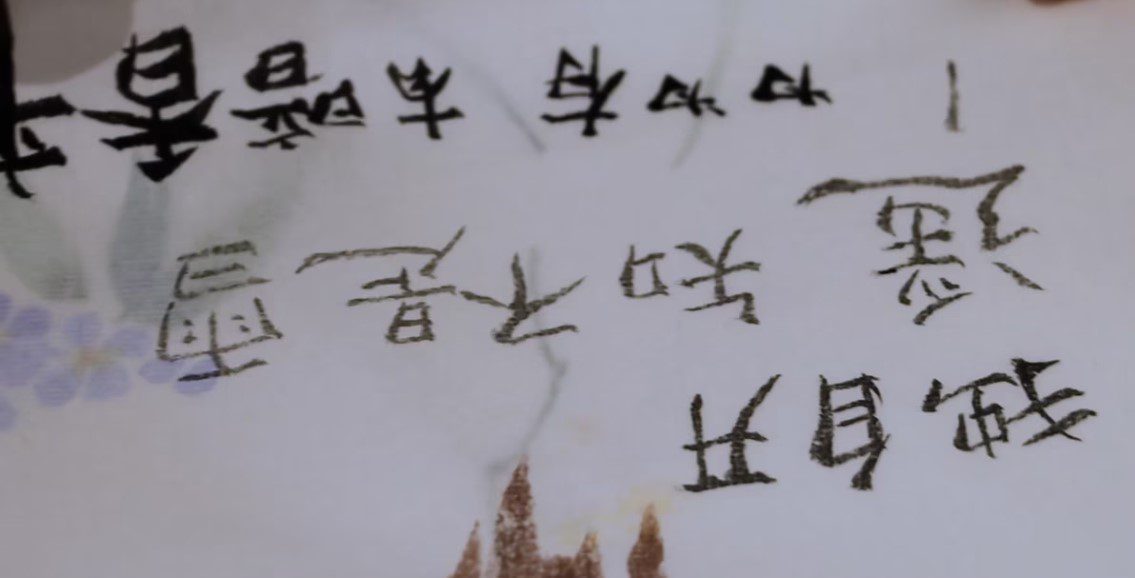 独自开
遥知不是雪
为为有暗香